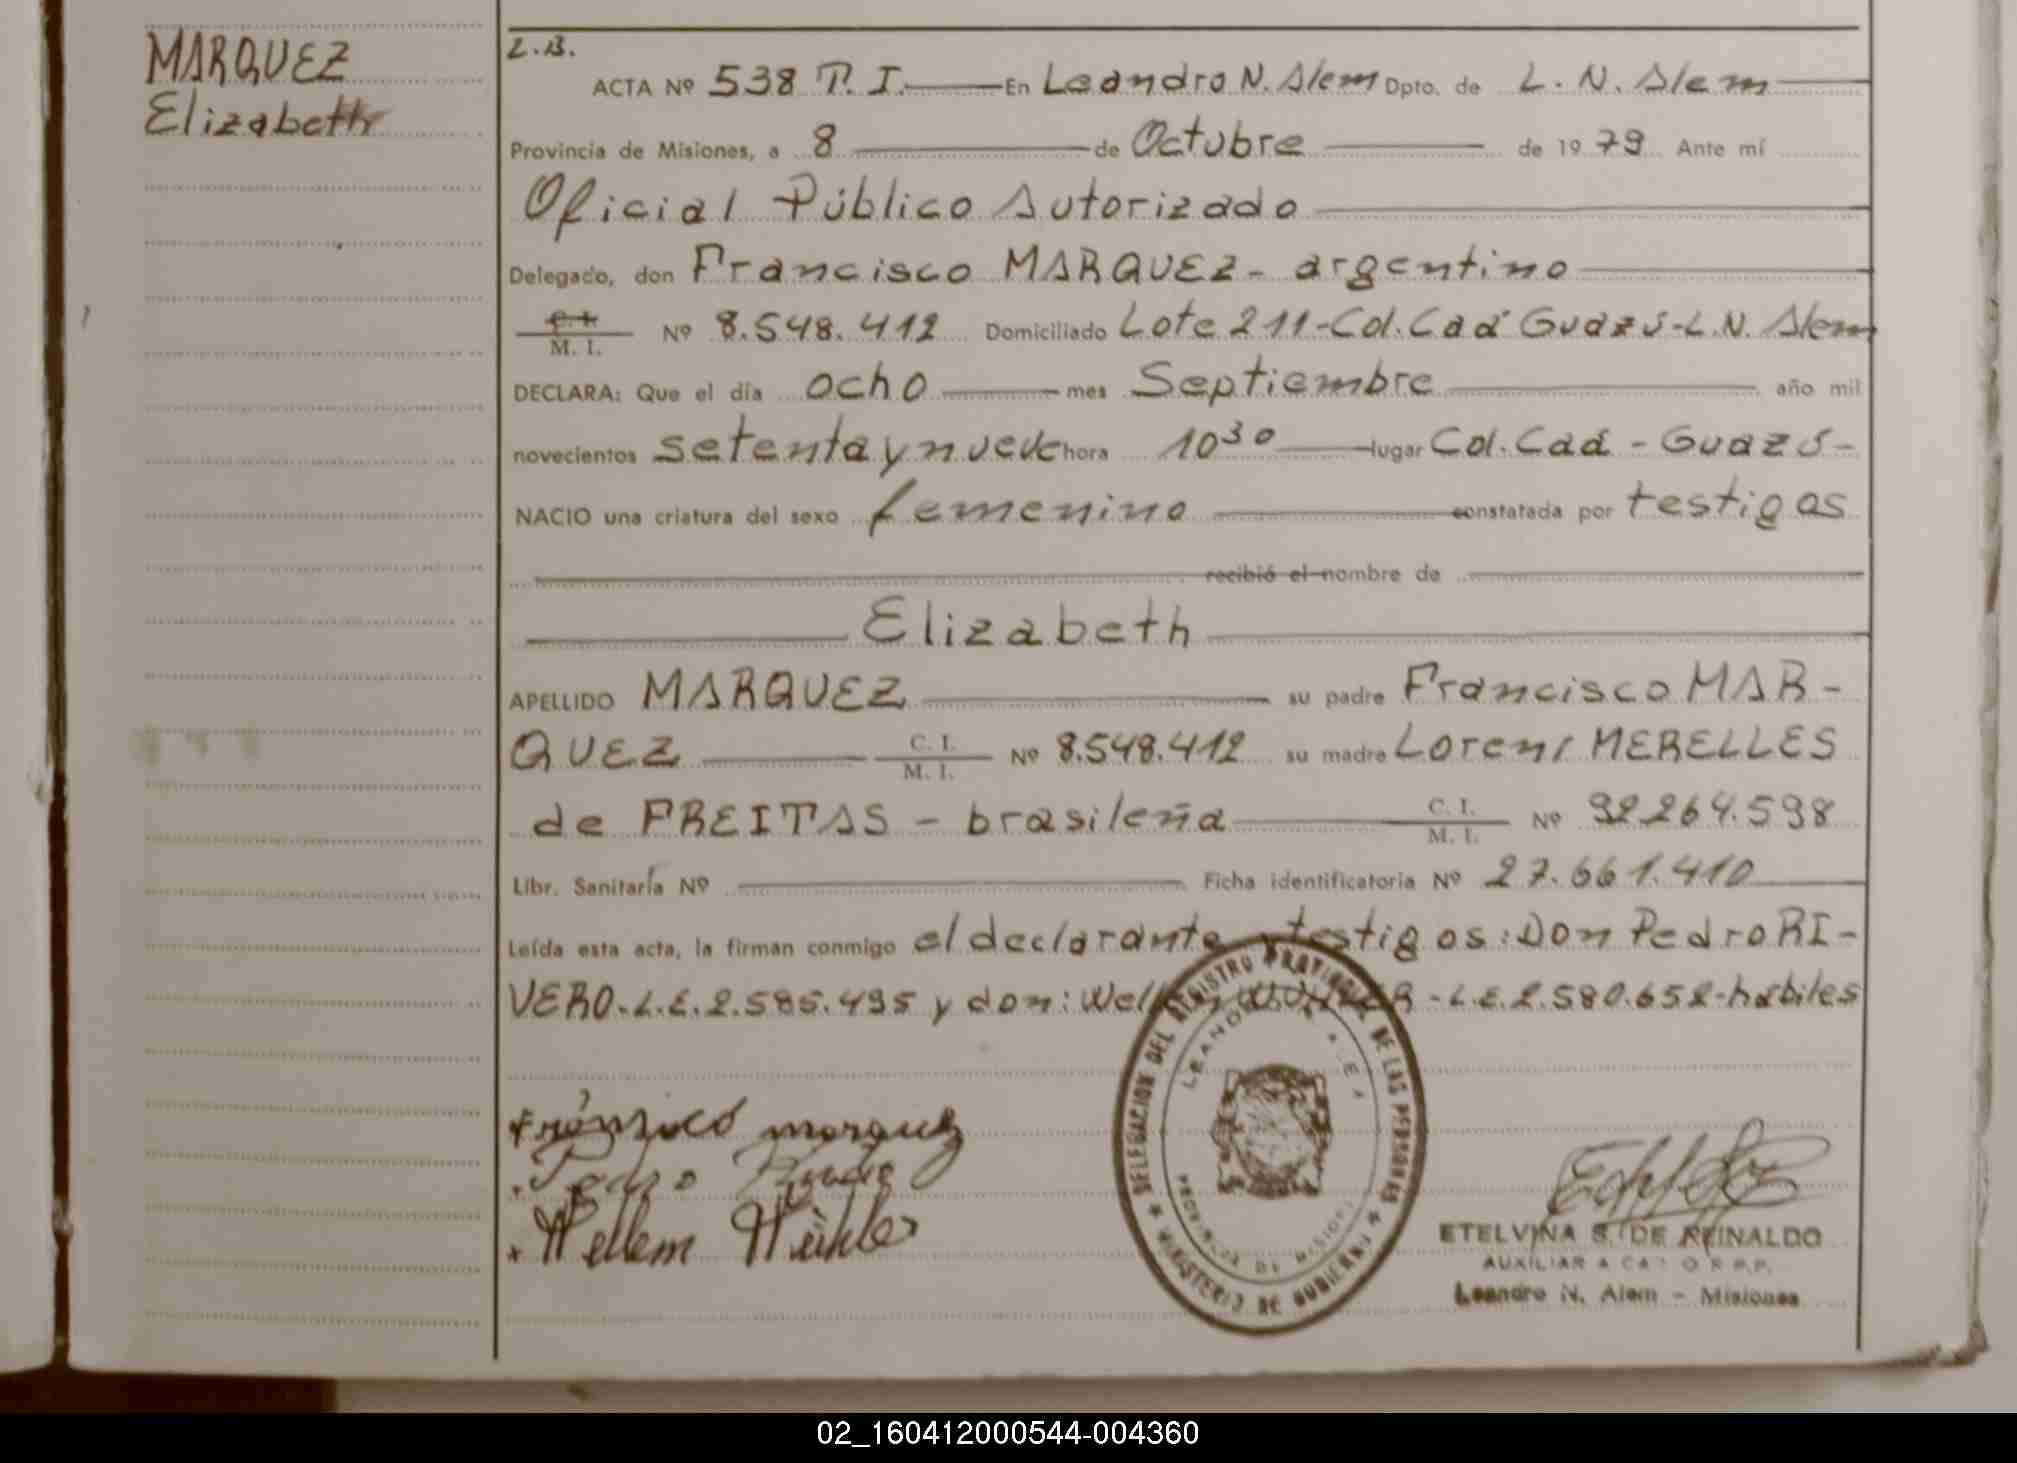 MARQUEZ
Elizabeth
L.B.
ACTA Nº 538 T. I. En Leandro N. Alem Dpto. de L. N. Alem
Provincia de Misiones, a 8 de Octubre de 1979 Ante mí
Oficial Público Autorizado
Delegado, don Francisco MARQUEZ - argentino
C. I.
M. I. Nº 8.548.412 Domiciliado Lote 211-Col. Caá Guazú-L.N. Alem
DECLARA: Que el día ocho mes Septiembre año mil
novecientos setenta y nueve hora 10 30 lugar Col. Caá - Guazú -
NACIO una criatura del sexo femenino constatada por testigos
recibió el nombre de
Elizabeth
APELLIDO MARQUEZ su padre Francisco MAR-
QUEZ C. I. M. I. Nº 8.548.412 su madre Loreni MERELLES
de FREITAS - brasileña C. I. M. I. Nº 92.264.598
Libr. Sanitaria Nº Ficha identificatoria Nº 27.661.410
Leída esta acta, la firman conmigo el declarante y testigos: Don Pedro RI-
VERO - L.E. 2.585.495 y don: - L.E. 2.580.652 - hábiles
DELEGACION DEL REGISTRO PROVINCIAL DE LAS PERSONAS
MINISTERIO DE GOBIERNO
PROVINCIA DE MISIONES
Wellem
ETELVINA S. DE REINALDO
AUXILIAR
Leandro N. Alem - Misiones
02_160412000544-004360